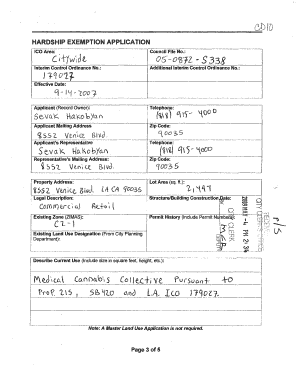 CD10
HARDSHIP EXEMPTION APPLICATION
ICO Area: Council File No.:
Citywide 05-0872-S338
Interim Control Ordinance No.: Additional Interim Control Ordinance No.:
179027
Effective Date:
9-14-2007
Applicant (Record Owner): Telephone:
Sevak Hakobyan (818) 915-4000
Applicant Mailing Address Zip Code:
8552 Venice Blvd. 90035
Applicant's Representative Telephone:
Sevak Hakobyan (818) 915-4000
Representative's Mailing Address Zip Code:
8552 Venice Blvd. 90035
Property Address: Lot Area (sq. ft.):
8552 Venice Blvd. LA CA 90035
Legal Description: Structure/Building Construction Date:
Commercial Retail
Existing Zone (ZIMAS): Permit History (Include Permit Numbers):
C2-1
Existing Land Use Designation (From City Planning
Department):
CITY CLERK
Describe Current Use (Include size in square feet, height, etc.):
Medical Cannabis Collective Pursuant to
Prop. 215, SB420 and L.A. Ico 179027
Note: A Master Land Use Application is not required.
Page 3 of 6